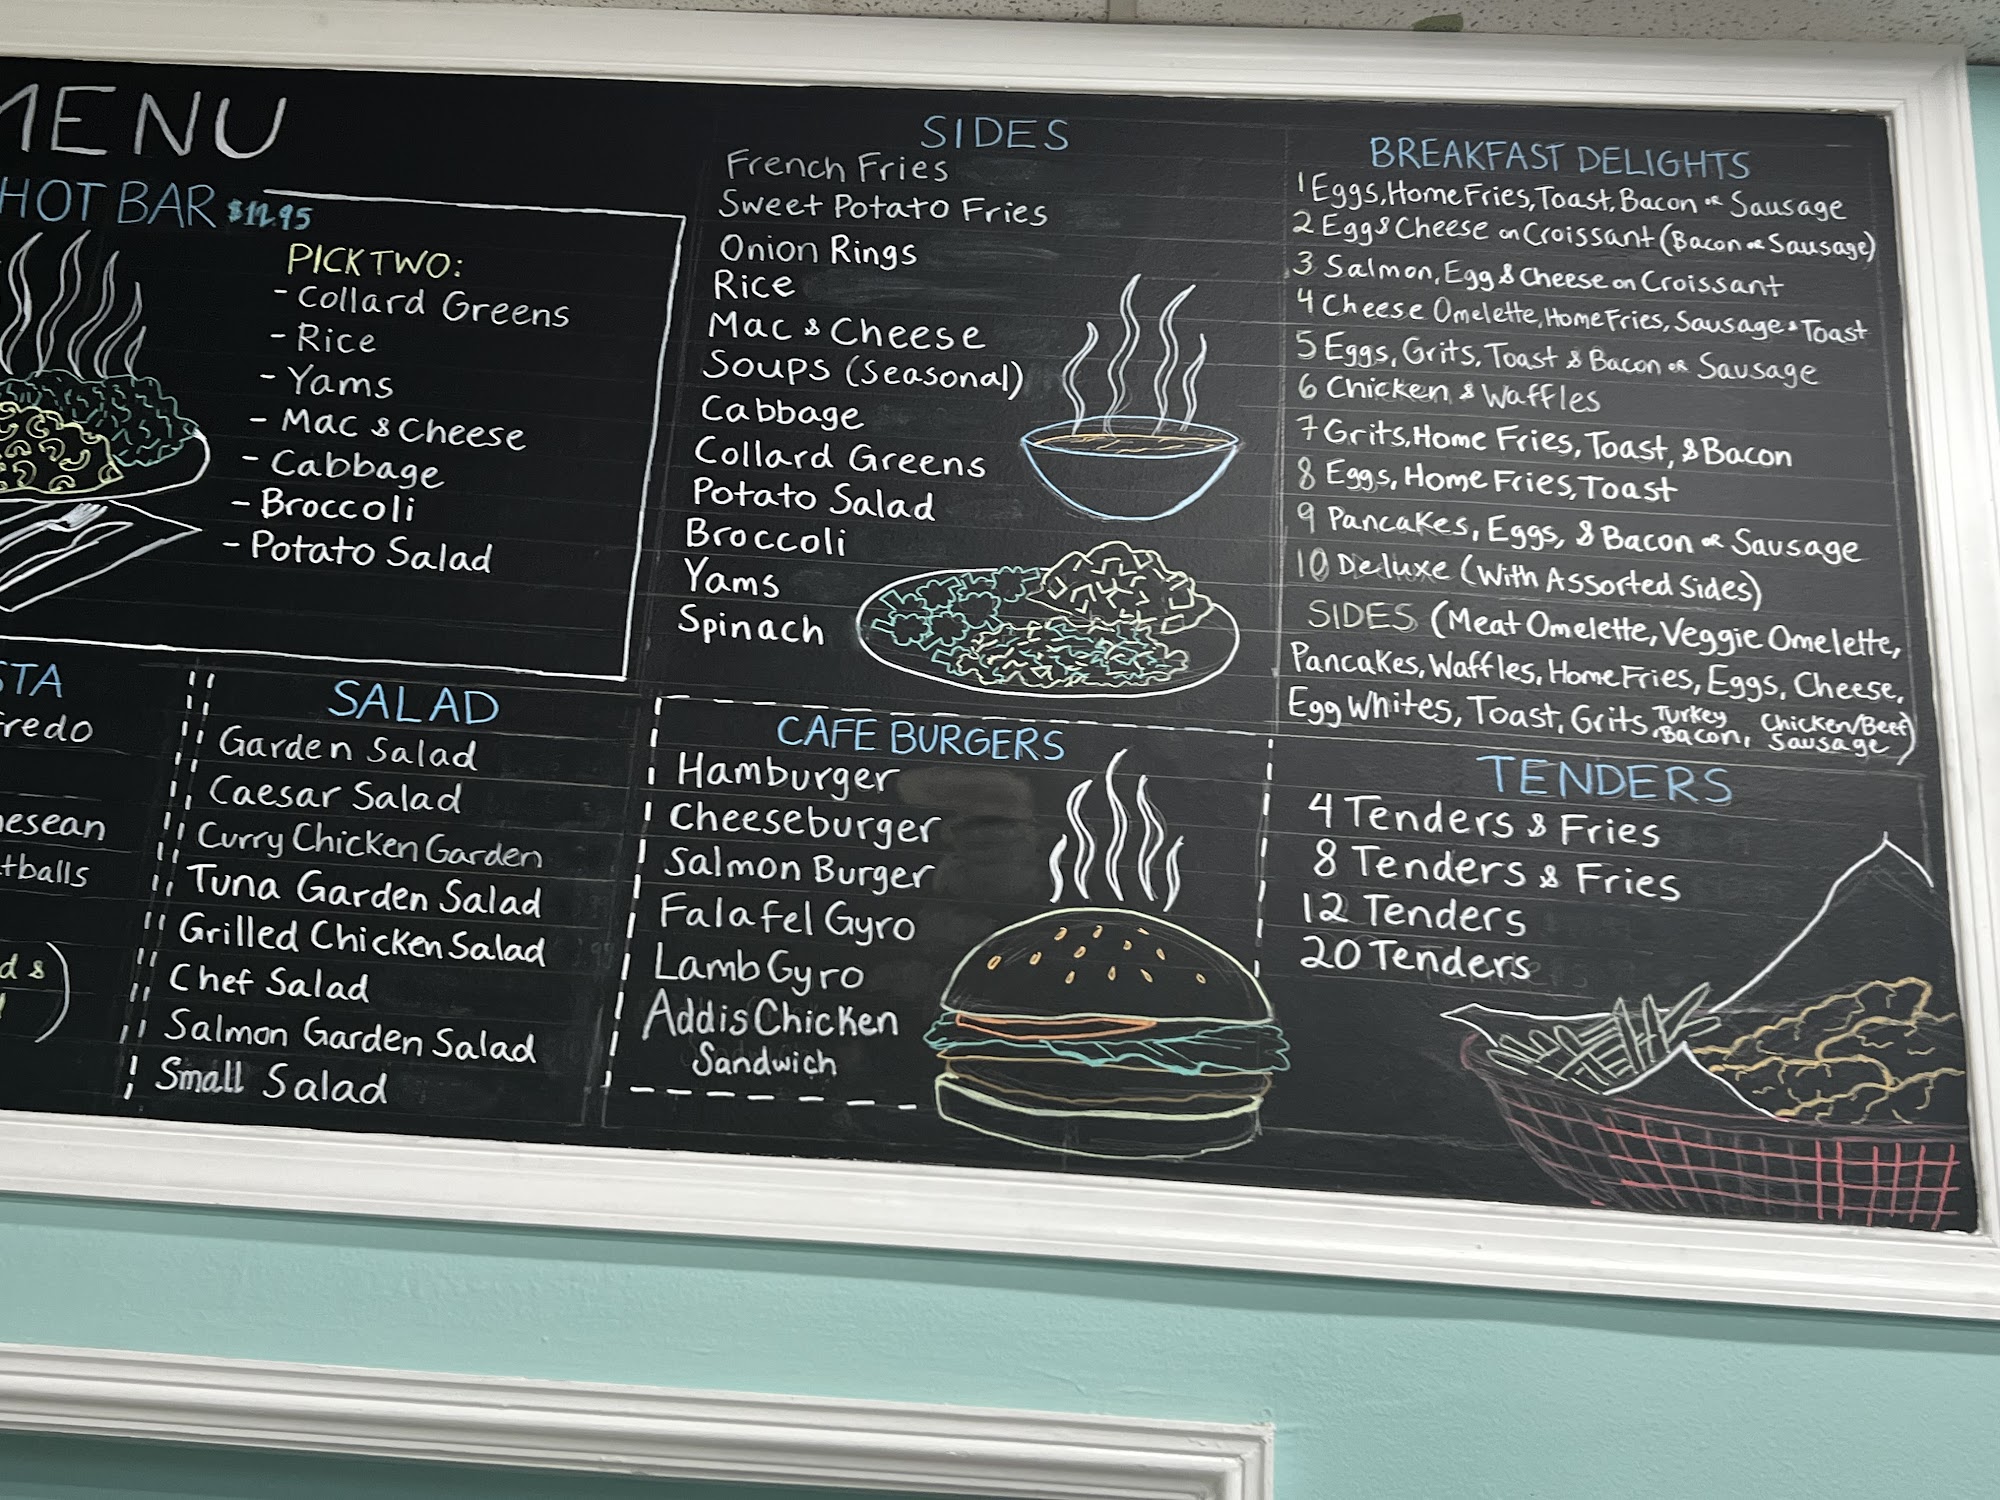 MENU
HOT BAR $12.95
PICK TWO:
- Collard Greens
- Rice
- Yams
- Mac & Cheese
- Cabbage
- Broccoli
- Potato Salad
SALAD
Garden Salad
Caesar Salad
Curry Chicken Garden
Tuna Garden Salad
Grilled Chicken Salad
Chef Salad
Salmon Garden Salad
Small Salad
SIDES
French Fries
Sweet Potato Fries
Onion Rings
Rice
Mac & Cheese
Soups (Seasonal)
Cabbage
Collard Greens
Potato Salad
Broccoli
Yams
Spinach
CAFE BURGERS
Hamburger
Cheeseburger
Salmon Burger
Falafel Gyro
Lamb Gyro
Addis Chicken
Sandwich
BREAKFAST DELIGHTS
1 Eggs, Home Fries, Toast, Bacon or Sausage
2 Egg & Cheese on Croissant (Bacon or Sausage)
3 Salmon, Egg & Cheese on Croissant
4 Cheese Omelette, Home Fries, Sausage & Toast
5 Eggs, Grits, Toast & Bacon or Sausage
6 Chicken & Waffles
7 Grits, Home Fries, Toast, & Bacon
8 Eggs, Home Fries, Toast
9 Pancakes, Eggs, & Bacon or Sausage
10 Deluxe (With Assorted Sides)
SIDES (Meat Omelette, Veggie Omelette,
Pancakes, Waffles, Home Fries, Eggs, Cheese,
Egg Whites, Toast, Grits, Turkey Bacon, Chicken/Beef Sausage)
TENDERS
4 Tenders & Fries
8 Tenders & Fries
12 Tenders
20 Tenders